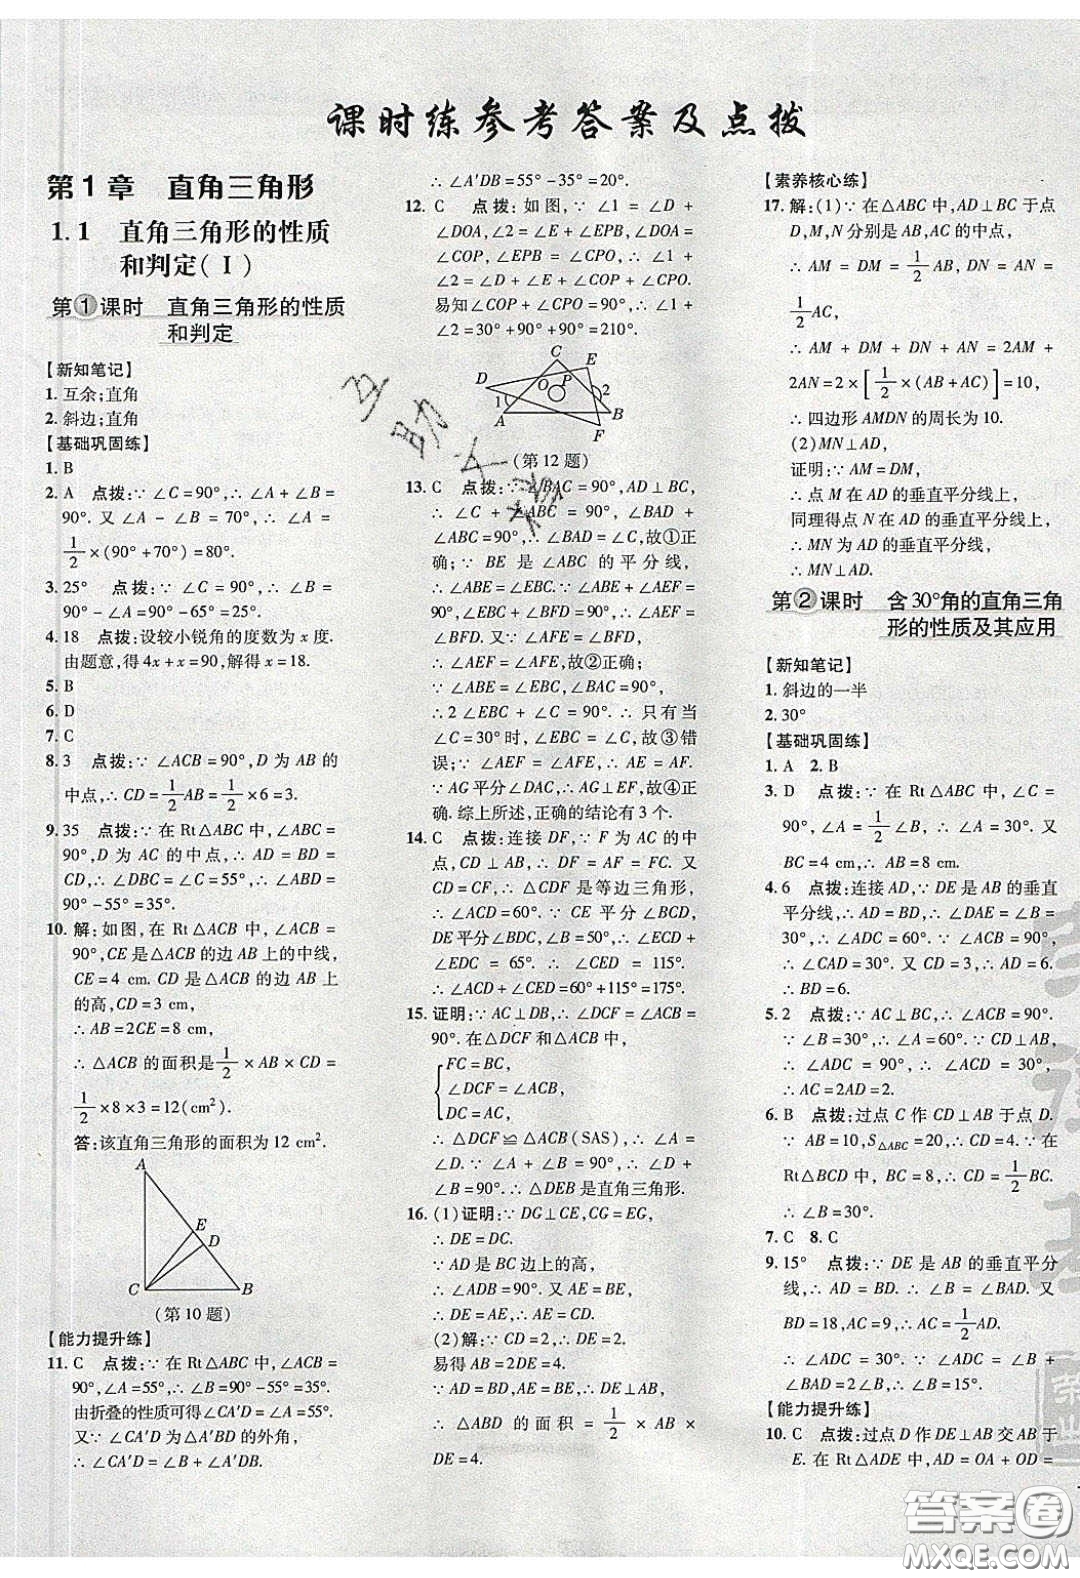 课时练参考答案及点拨
第1章 直角三角形
1.1 直角三角形的性质
和判定(Ⅰ)
第①课时 直角三角形的性质
和判定
【新知笔记】
1. 互余;直角
2. 斜边;直角
【基础巩固练】
1. B
2. A 点拨:∵∠C=90°,∴∠A+∠B=
90°. 又∠A-∠B=70°,∴∠A=
1/2×(90°+70°)=80°.
3. 25° 点拨:∵∠C=90°,∴∠B=
90°-∠A=90°-65°=25°.
4. 18 点拨:设较小锐角的度数为 x 度.
由题意,得 4x+x=90,解得 x=18.
5. B
6. D
7. C
8. 3 点拨:∵∠ACB=90°,D 为 AB 的
中点,∴CD=1/2AB=1/2×6=3.
9. 35 点拨:∵在 Rt△ABC 中,∠ABC=
90°,D 为 AC 的中点,∴AD=BD=
CD,∴∠DBC=∠C=55°,∴∠ABD=
90°-55°=35°.
10. 解:如图,在 Rt△ACB 中,∠ACB=
90°,CE 是△ACB 的边 AB 上的中线,
CE=4 cm. CD 是△ACB 的边 AB 上
的高,CD=3 cm,
∴AB=2CE=8 cm,
∴△ACB 的面积是1/2×AB×CD=
1/2×8×3=12(cm²).
答:该直角三角形的面积为 12 cm².
A
E
D
C
B
(第 10 题)
【能力提升练】
11. C 点拨:∵在 Rt△ABC 中,∠ACB=
90°,∠A=55°,∴∠B=90°-55°=35°.
由折叠的性质可得∠CA′D=∠A=55°.
又∵∠CA′D 为△A′DB 的外角,
∴∠CA′D=∠B+∠A′DB,
∴∠A′DB=55°-35°=20°.
12. C 点拨:如图,∵∠1=∠D+
∠DOA,∠2=∠E+∠EPB,∠DOA=
∠COP,∠EPB=∠CPO,∴∠1+
∠2=∠D+∠E+∠COP+∠CPO.
易知∠COP+∠CPO=90°,∴∠1+
∠2=30°+90°+90°=210°.
C
E
D
O
P
1
2
A
B
F
(第 12 题)
13. C 点拨:∵∠BAC=90°,AD⊥BC,
∴∠C+∠ABC=90°,∠BAD+
∠ABC=90°,∴∠BAD=∠C,故①正
确;∵BE 是∠ABC 的平分线,
∴∠ABE=∠EBC.∵∠ABE+∠AEF=
90°,∠EBC+∠BFD=90°,
∴∠AEF=∠BFD.又∠AFE=∠BFD,
∴∠AEF=∠AFE,故②正确;
∵∠ABE=∠EBC,∠BAC=90°,
∴2∠EBC+∠C=90°.∴只有当
∠C=30°时,∠EBC=∠C,故③错
误;∵∠AEF=∠AFE,∴AE=AF.
∵AG 平分∠DAC,∴AG⊥EF,故④正
确. 综上所述,正确的结论有 3 个.
14. C 点拨:连接 DF,∵F 为 AC 的中
点,CD⊥AB,∴DF=AF=FC. 又
CD=CF,∴△CDF 是等边三角形,
∴∠ACD=60°.∵CE 平分∠BCD,
DE 平分∠BDC,∠B=50°,∴∠ECD+
∠EDC=65°.∴∠CED=115°.
∴∠ACD+∠CED=60°+115°=175°.
15. 证明:∵AC⊥DB,∴∠DCF=∠ACB=
90°. 在△DCF 和△ACB 中,
FC=BC,
∠DCF=∠ACB,
DC=AC,
∴△DCF≌△ACB(SAS),∴∠A=
∠D.∵∠A+∠B=90°,∴∠D+
∠B=90°,∴△DEB 是直角三角形.
16. (1)证明:∵DG⊥CE,CG=EG,
∴DE=DC.
∵AD 是 BC 边上的高,
∴∠ADB=90°. 又∵AE=BE,
∴DE=AE,∴AE=CD.
(2)解:∵∠B=45°,∠ADB=90°,
易得 AB=2DE=10.
∵AD=BD,AE=BE,∴DE⊥AB,
∴△ABD 的面积=1/2×AB×
DE=4.
【素养核心练】
17. 解:(1)∵在△ABC 中,AD⊥BC 于点
D,M,N 分别是 AB,AC 的中点,
∴AM=DM=1/2AB,DN=AN=
1/2AC,
∴AM+DM+DN+AN=2AM+
2AN=2×[1/2×(AB+AC)]=10,
∴四边形 AMDN 的周长为 10.
(2)MN⊥AD,
证明:∵AM=DM,
∴点 M 在 AD 的垂直平分线上,
同理得点 N 在 AD 的垂直平分线上,
∴MN 为 AD 的垂直平分线,
∴MN⊥AD.
第②课时 含30°角的直角三角
形的性质及其应用
【新知笔记】
1. 斜边的一半
2. 30°
【基础巩固练】
1. A 2. B
3. D 点拨:∵在 Rt△ABC 中,∠C=
90°,∠A=1/2∠B,∴∠A=30°. 又
BC=4 cm,∴AB=8 cm.
4. 6 点拨:连接 AD,∵DE 是 AB 的垂直
平分线,∴AD=BD,∴∠DAE=∠B=
30°,∴∠ADC=60°. 又∠C=90°,
∴∠CAD=30°. 又 CD=3,∴AD=6,
∴BD=6.
5. 2 点拨:∵AC⊥BC,∴∠ACB=90°.
又∠B=30°,∴∠A=60°.∵CD⊥AB,
∴∠ADC=90°,∴∠ACD=30°,
∴AC=2AD=2.
6. B 点拨:过点 C 作 CD⊥AB 于点 D.
∵AB=10,S△ABC=20,∴CD=4.∵在
Rt△BCD 中,BC=8,∴CD=1/2BC.
∴∠B=30°.
7. C 8. C
9. 15° 点拨:∵DE 是 AB 的垂直平分
线,∴AD=BD.∴∠B=∠BAD. 又
BD=18,AC=9,∴AC=1/2AD.
∴∠ADC=30°.∵∠ADC=∠B+
∠BAD=2∠B=30°,∴∠B=15°.
【能力提升练】
10. C 点拨:过点 D 作 DE⊥OM 交 AB 于
E. 在 Rt△ADE 中,AD=OA+OD=
答案圈
MXQE.COM